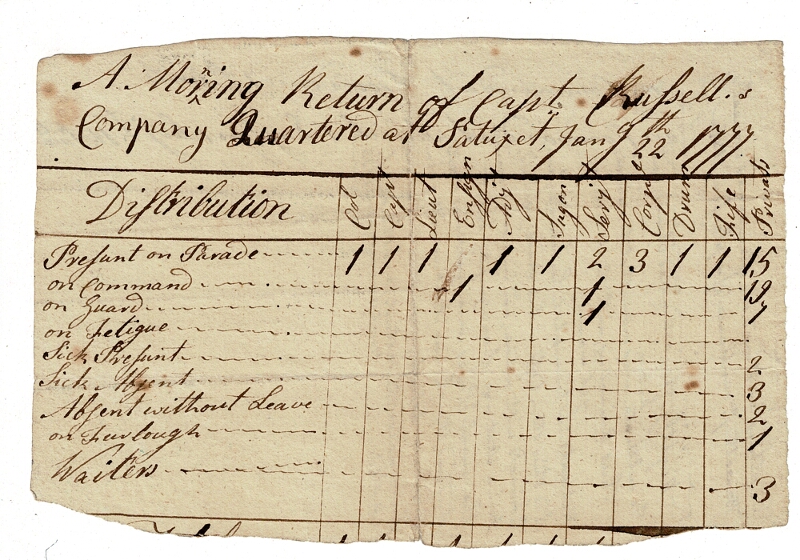 A. Morning Return of Capt. Russell.s
Company Quartered at Patuxet, Jan 22th 1777
Distribution Col Capt Lieut Ensign Adjt Surgon Serjt Corpls Drum Fife Privats
Presunt on Parade 1 1 1 1 1 2 3 1 1 15
on Command 1 1 19
on Guard 1 7
on Fetigue
Sick Presunt 2
Sick Absent 3
Absent without Leave 2
on Furlough 1
Waiters 3
Total